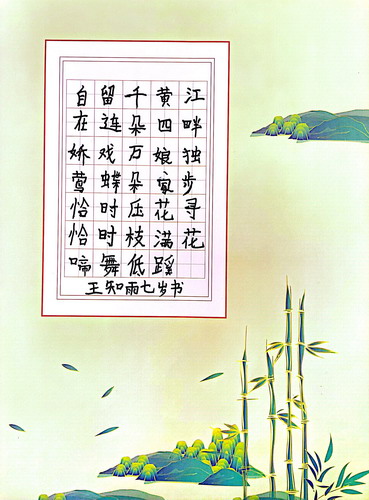 江畔独步寻花
黄四娘家花满蹊
千朵万朵压枝低
留连戏蝶时时舞
自在娇莺恰恰啼
王知雨七岁书